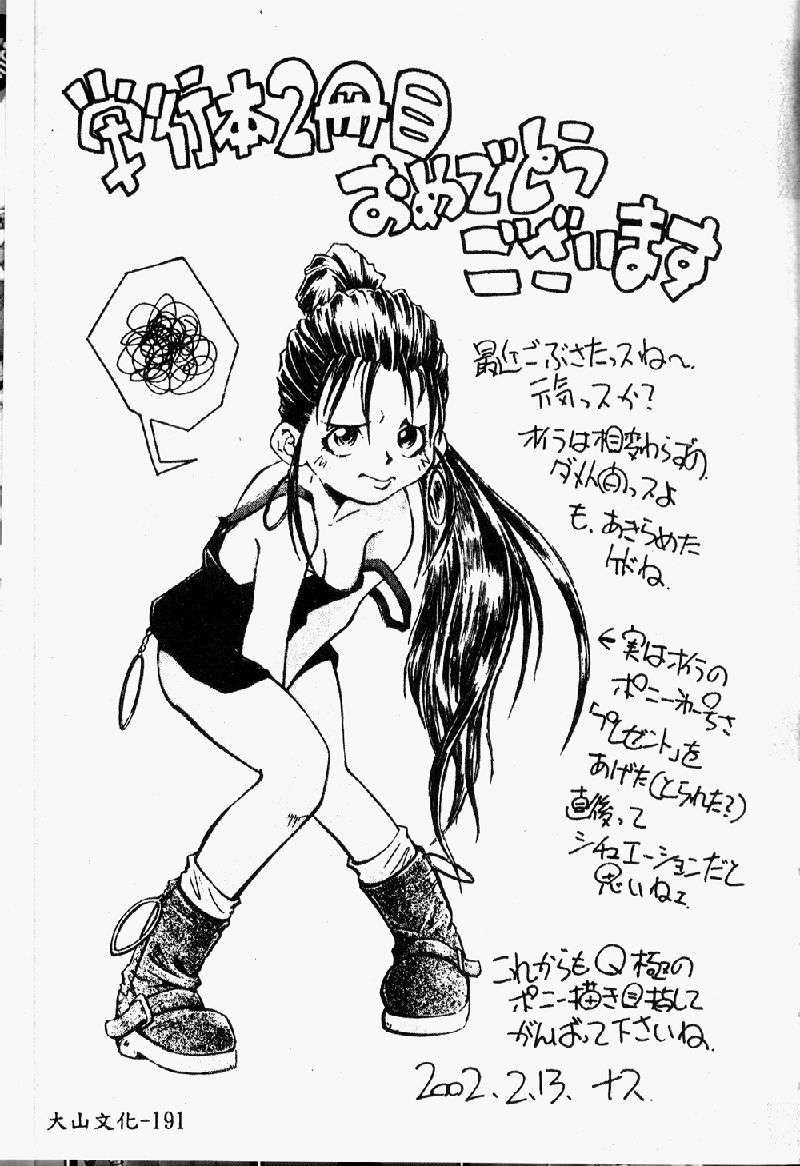 単行本2冊目
おめでとう
ございます
最近ごぶさたっスね〜
元気っスか?
オイラは相変わらずの
ダメ人間っスよ
も、あきらめた
ケドね
←実はオイラの
ポニー
「プレゼント」を
あげた(とられた?)
直後って
シチュエーションだと
思いねェ
これからもQ極の
ポニー描き目指して
がんばって下さいね
2002.2.13. ナス
大山文化-191